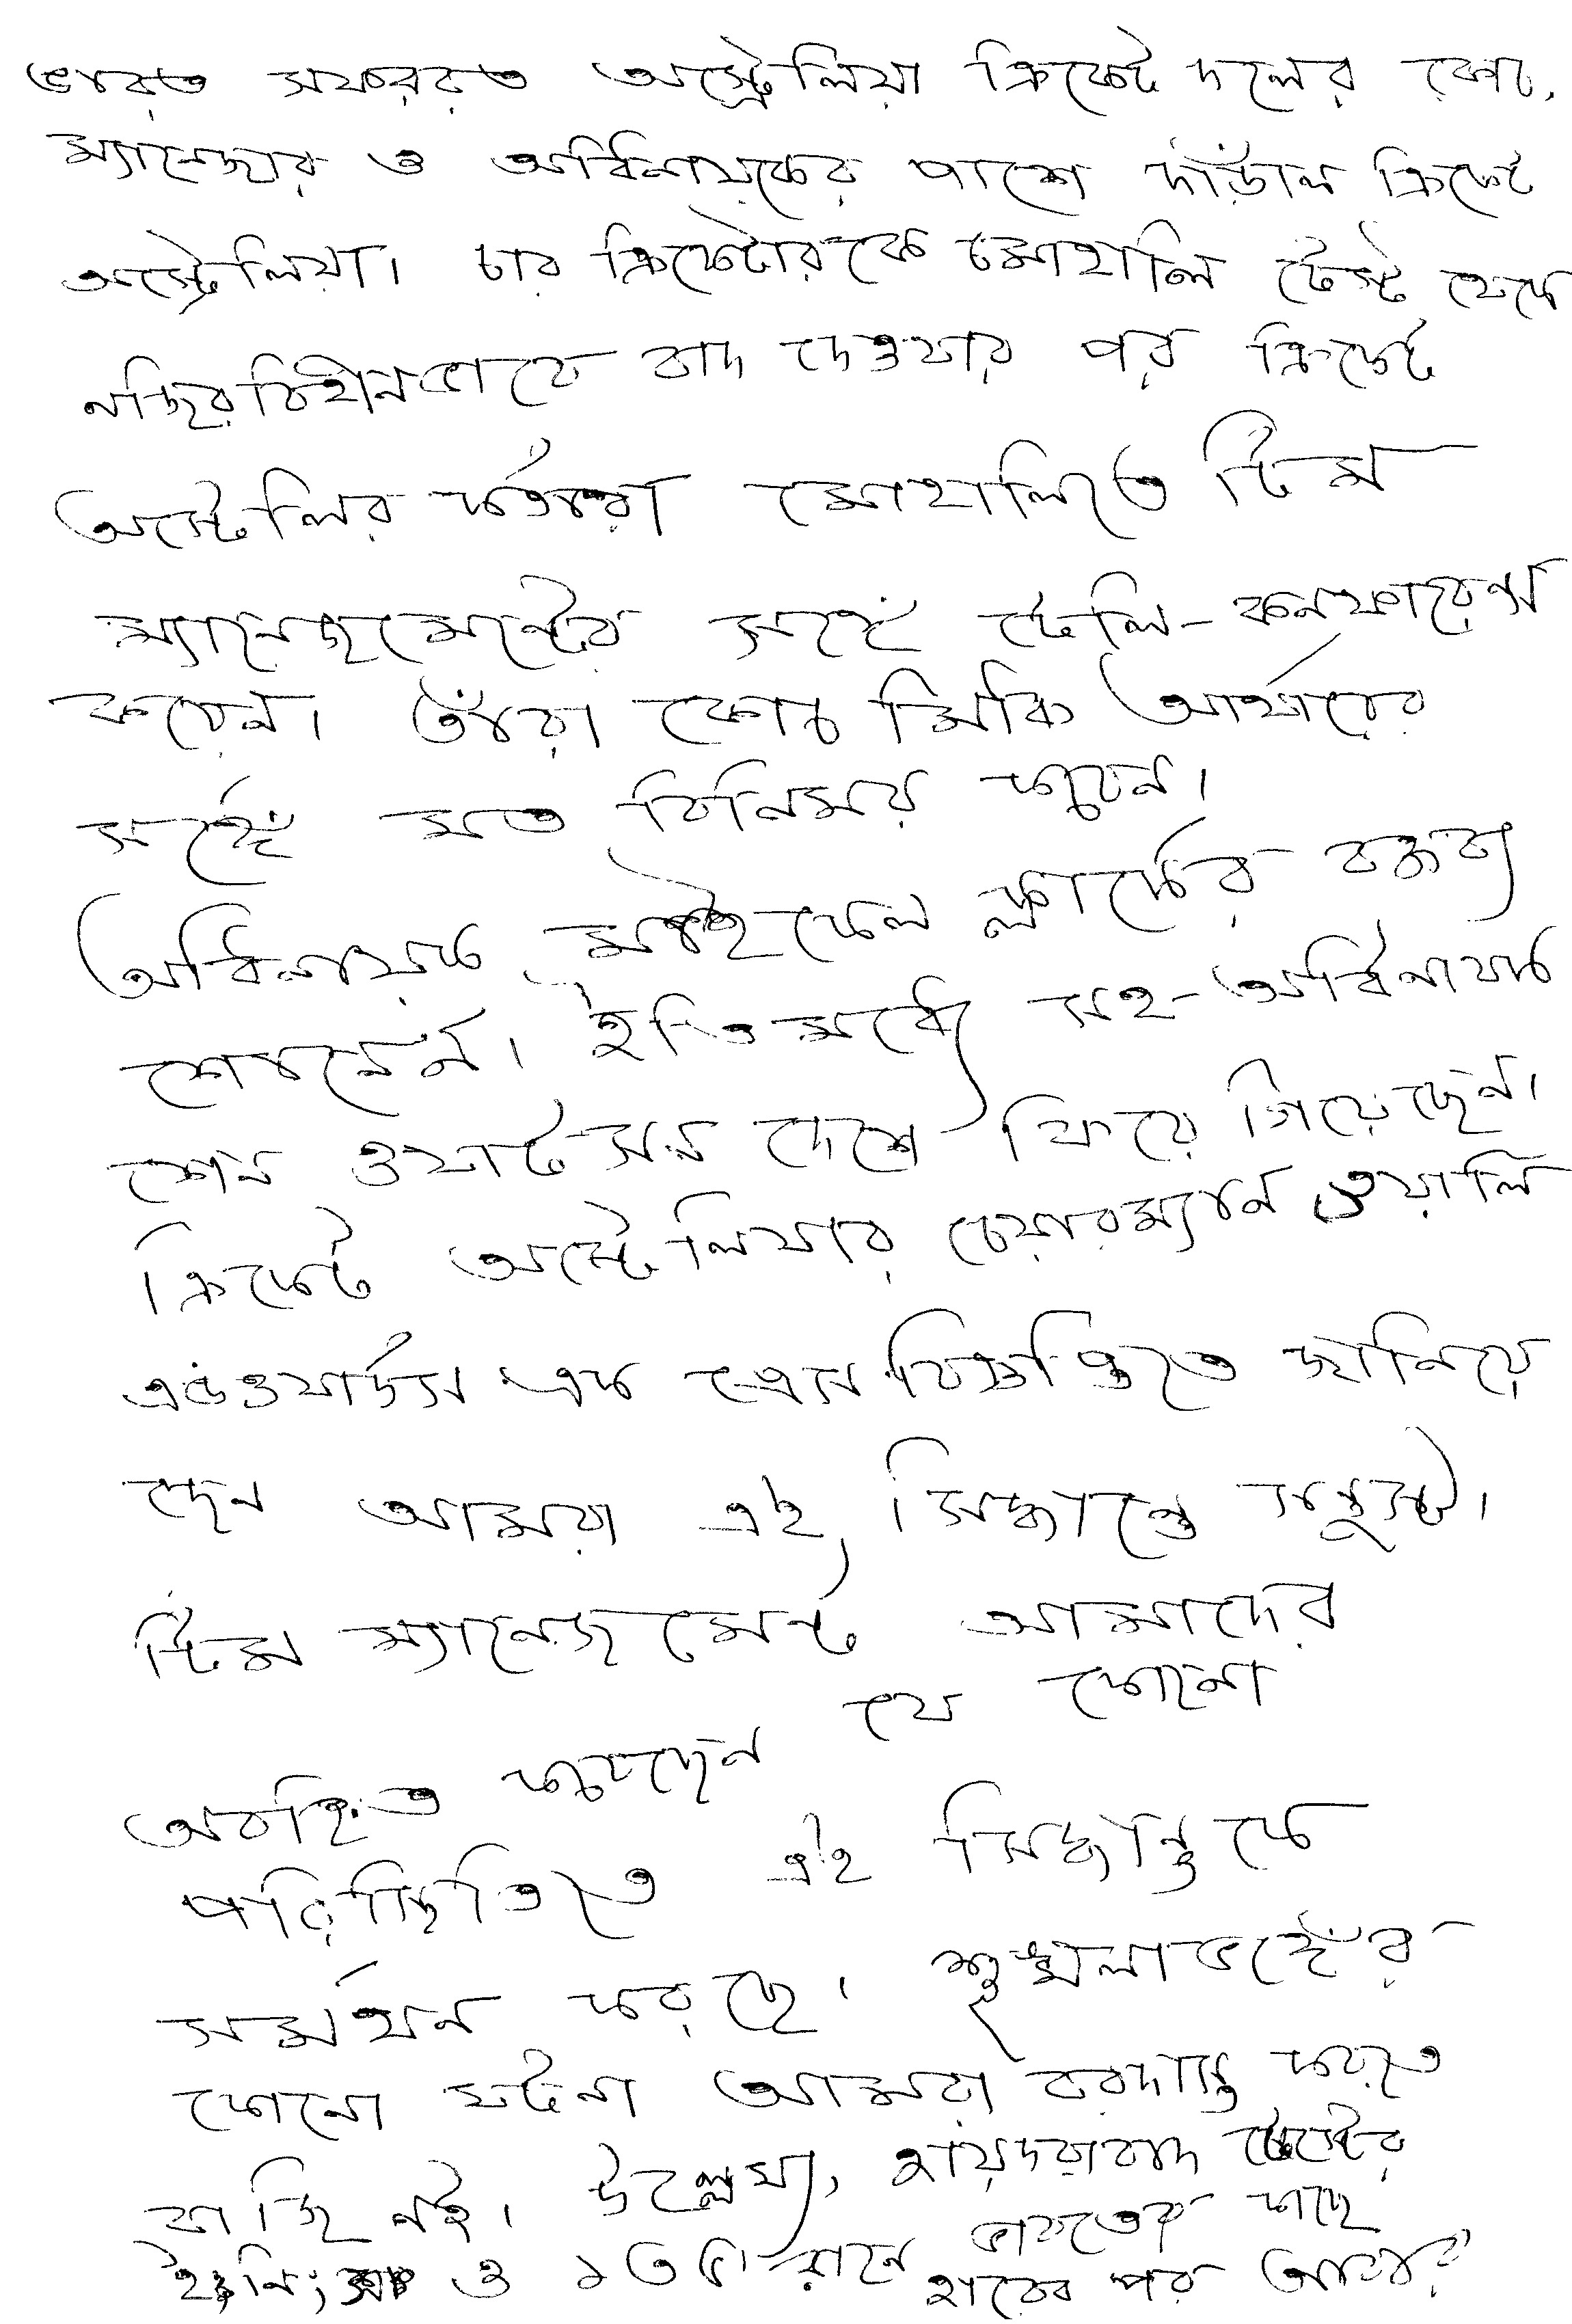 ভারত সফররত অস্ট্রেলিয়া ক্রিকেট দলের কোচ,
ম্যানেজার ও অধিনায়কের পাশে দাঁড়াল ক্রিকেট
অস্ট্রেলিয়া। চার ক্রিকেটারকে মোহালি টেস্ট থেকে
নজিরবিহীনভাবে বাদ দেওয়ার পর ক্রিকেট
অস্ট্রেলিয়ার কর্তারা মোহালিতে টিম
ম্যানেজমেন্টের সঙ্গে টেলি-কনফারেন্স
করেন। তাঁরা কোচ মিকি আর্থারের
সঙ্গে মত বিনিময় করেন।
অধিনায়ক মাইকেল ক্লার্কের বক্তব্য
শোনেন। ইতিমধ্যে সহ-অধিনায়ক
শেন ওয়াটসন দেশে ফিরে গিয়েছেন।
ক্রিকেট অস্ট্রেলিয়ার চেয়ারম্যান ওয়ালি
এডওয়ার্দস এক প্রেস বিজ্ঞপ্তিতে জানিয়ে
দেন আমরা এই সিদ্ধান্তে সন্তুষ্ট।
টিম ম্যানেজমেন্ট আমাদের
অবহিত করেছেন যে কোনো
পরিস্থিতিতে এই সিদ্ধান্তকে
সমর্থন করছে। শৃঙ্খলাভঙ্গের
কোনো ঘটনা আমরা বরদাস্ত করতে
রাজি নই। উল্লেখ্য, হায়দরাবাদ টেস্টের
ইনিংস ও ১৩৫ রানে ভারতের কাছে
হারের পর আর্থার